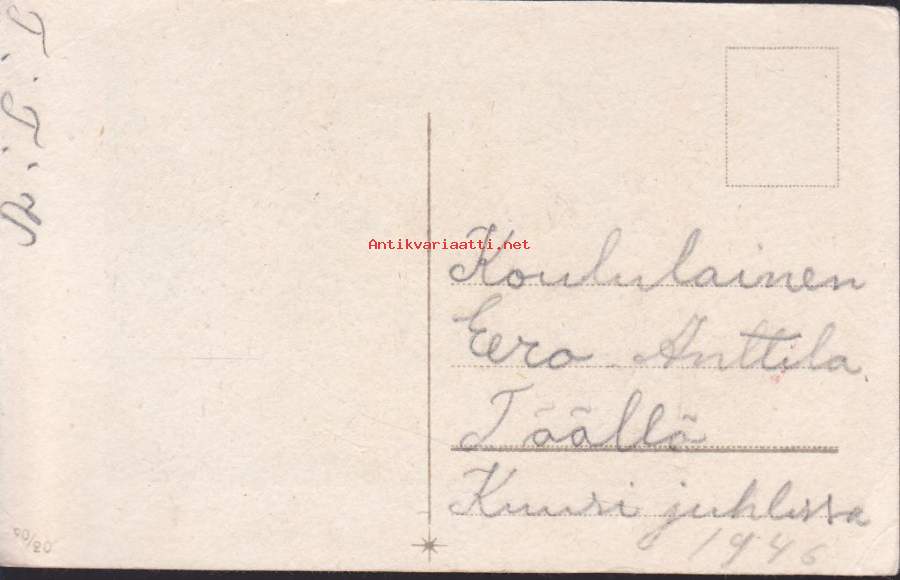 Antikvariaatti.net
Koululainen
Eero Anttila
Täällä
Kuusi juhlissa
1946